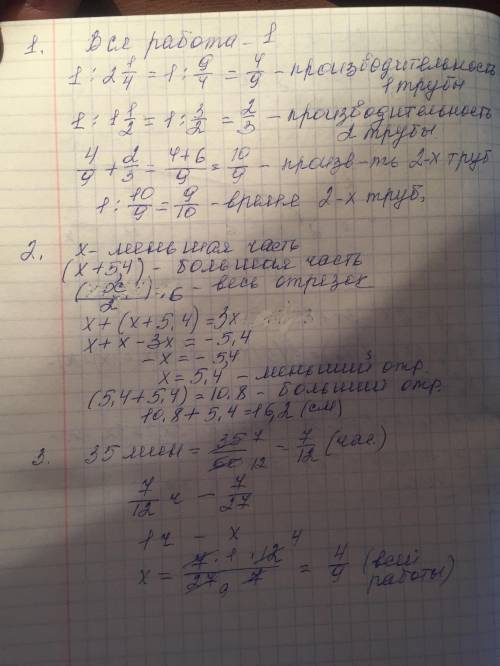 1. Вся работа - 1
1 : 2 1/4 = 1 : 9/4 = 4/9 - производительность
1 трубы
1 : 1 1/2 = 1 : 3/2 = 2/3 - производительность
2 трубы
4/9 + 2/3 = (4+6)/9 = 10/9 - произв-ть 2-х труб
1 : 10/9 = 9/10 - время 2-х труб.
2. x - меньшая часть
(x+54) - большая часть
- весь отрезок
x + (x+5,4) = 3x
x + x - 3x = -5,4
-x = -5,4
x = 5,4 - меньший отр.
(5,4+5,4) = 10,8 - больший отр.
10,8 + 5,4 = 16,2 (см)
3. 35 мин = 35/60 = 7/12 (час.)
7/12 ч - 7/27
1 ч - x
x = (7 · 1 · 12)/(27 · 7) = 4/9 (всей
работы)